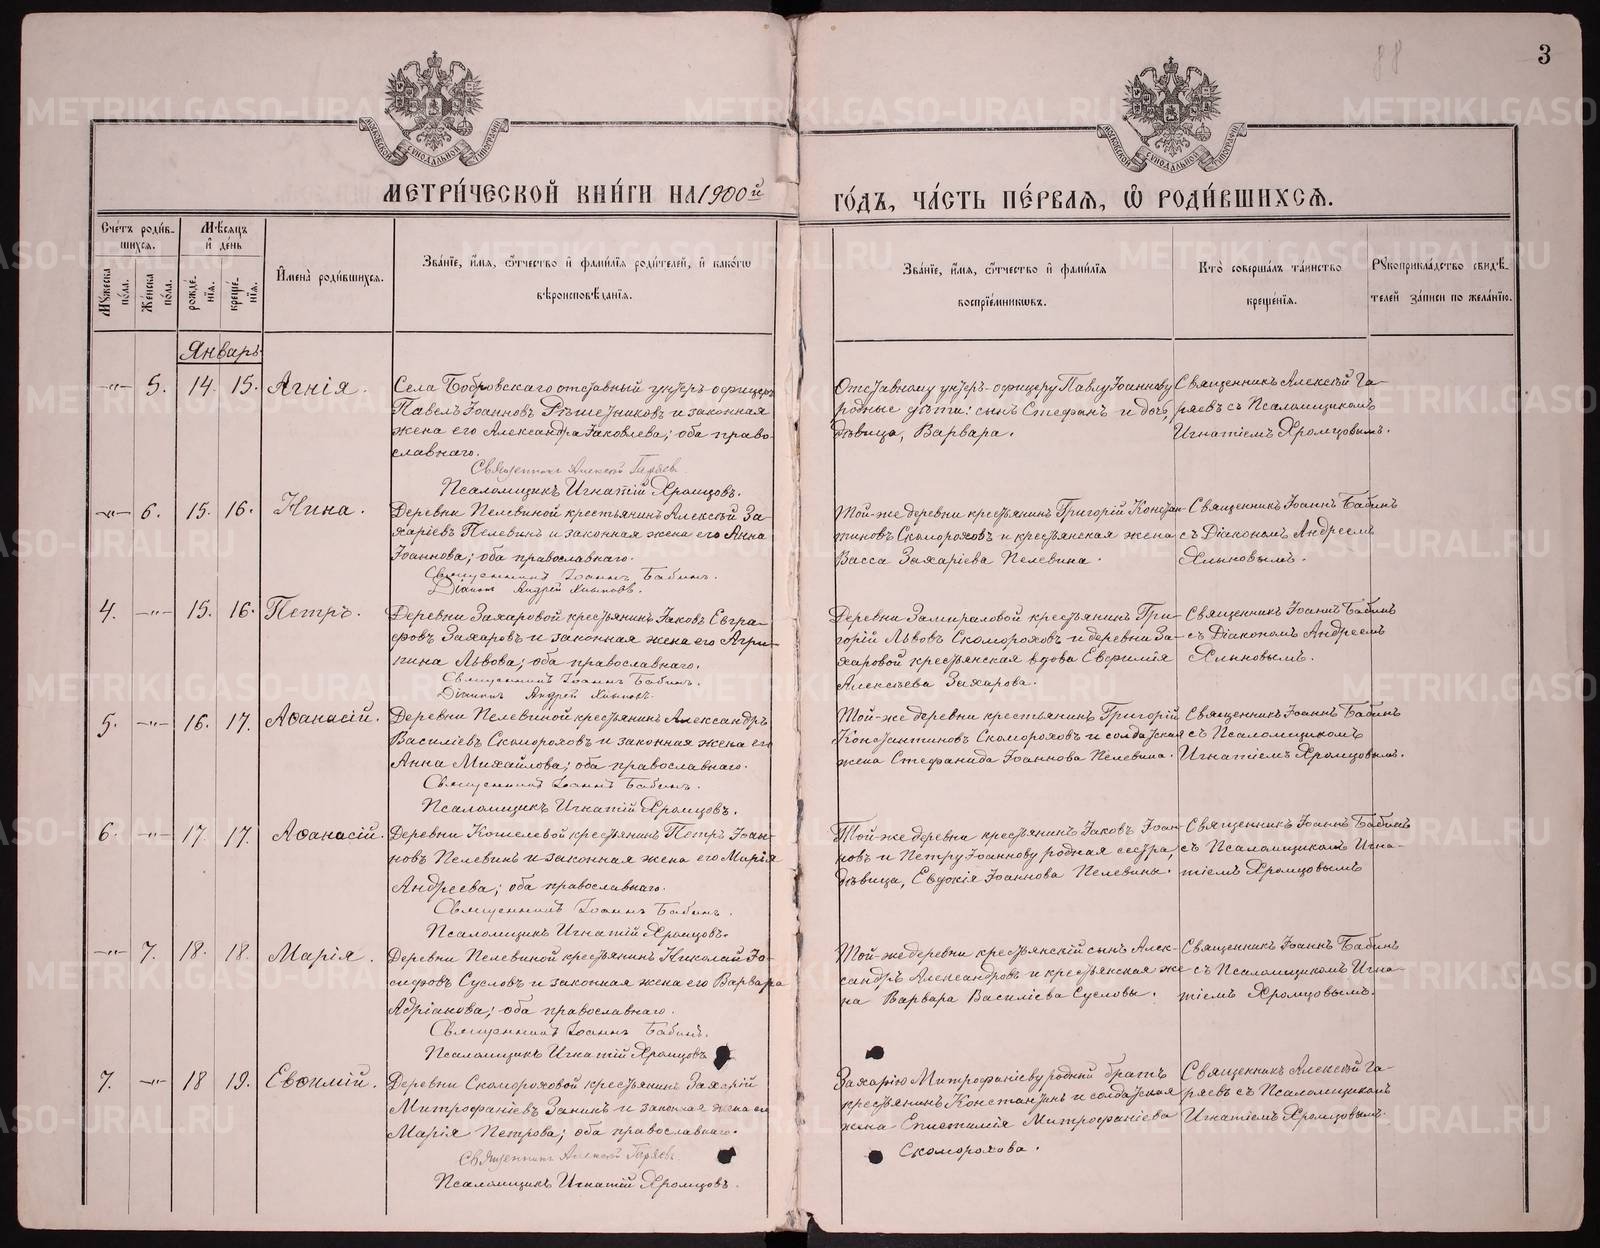 3
МЕТРИ́ЧЕСКОЙ КНИ́ГИ НА 1900й ГО́ДЪ, ЧА́СТЬ ПЕ́РВАЯ, Ѡ҆ РОДИ́ВШИХСЯ.
Сче́тъ роди́в-
шихся.
Мѣ́сяцъ
и҆ де́нь
Мꙋ́жеска по́ла.
Же́нска по́ла.
рожде́нїя.
креще́нїя.
И҆мена̀ роди́вшихся.
Зва́нїе, и҆́мя, ѻ҆́тчество и҆ фами́лїя роди́телей, и҆ како́гѡ
вѣроисповѣ́данїя.
Зва́нїе, и҆́мя, ѻ҆́тчество и҆ фами́лїя
воспрїе́мникѡвъ.
Кто̀ соверша́лъ та́инство
креще́нїя.
Рꙋкоприкла́дство свидѣ́-
телей за́писи по жела́нїю.
Январь
—„— 5. 14. 15. Агнія.
Села Бобровскаго отставный унтеръ-офицеръ
Павелъ Іоанновъ Рѣшетниковъ и законная
жена его Александра Іаковлева; оба право-
славнаго.
Священникъ Алексѣй Гаряевъ
Псаломщикъ Игнатій Хромцовъ.
Отставному унтеръ-офицеру Павлу Іоаннову
родные дѣти: сынъ Стефанъ и дочь,
дѣвица, Варвара.
Священникъ Алексѣй Га-
ряевъ съ Псаломщикомъ
Игнатіемъ Хромцовымъ.
—„— 6. 15. 16. Нина.
Деревни Пелевиной крестьянинъ Алексѣй За-
харіевъ Пелевинъ и законная жена его Анна
Іоаннова; оба православнаго.
Священникъ Іоаннъ Бабинъ.
Діаконъ Андрей Хлыновъ.
Той-же деревни крестьянинъ Григорій Констан-
тиновъ Скомороховъ и крестьянская жена
Васса Захаріева Пелевина.
Священникъ Іоаннъ Бабинъ
съ Діакономъ Андреемъ
Хлыновымъ.
4. —„— 15. 16. Петръ.
Деревни Захаровой крестьянинъ Іаковъ Евгра-
фовъ Захаровъ и законная жена его Агри-
пина Львова; оба православнаго.
Священникъ Іоаннъ Бабинъ.
Діаконъ Андрей Хлыновъ.
Деревни Замираловой крестьянинъ Гри-
горій Львовъ Скомороховъ и деревни За-
харовой крестьянская вдова Евфимія
Алексѣева Захарова.
Священникъ Іоаннъ Бабинъ
съ Діакономъ Андреемъ
Хлыновымъ.
5. —„— 16. 17. Аѳанасій.
Деревни Пелевиной крестьянинъ Александръ
Василіевъ Скомороховъ и законная жена его
Анна Михайлова; оба православнаго.
Священникъ Іоаннъ Бабинъ.
Псаломщикъ Игнатій Хромцовъ.
Той-же деревни крестьянинъ Григорій
Константиновъ Скомороховъ и солдатская
жена Стефанида Іоаннова Пелевина.
Священникъ Іоаннъ Бабинъ
съ Псаломщикомъ
Игнатіемъ Хромцовымъ.
6. —„— 17. 17. Аѳанасій.
Деревни Кошелевой крестьянинъ Петръ Іоан-
новъ Пелевинъ и законная жена его Марія
Андреева; оба православнаго.
Священникъ Іоаннъ Бабинъ.
Псаломщикъ Игнатій Хромцовъ.
Той-же деревни крестьянинъ Іаковъ Іоан-
новъ и Петру Іоаннову родная сестра,
дѣвица, Евдокія Іоаннова Пелевины.
Священникъ Іоаннъ Бабинъ
съ Псаломщикомъ Игна-
тіемъ Хромцовымъ
—„— 7. 18. 18. Марія.
Деревни Пелевиной крестьянинъ Николай Іо-
сифовъ Сусловъ и законная жена его Варвара
Адріанова; оба православнаго.
Священникъ Іоаннъ Бабинъ.
Псаломщикъ Игнатій Хромцовъ
Той-же деревни крестьянскій сынъ Алек-
сандръ Александровъ и крестьянская же-
на Варвара Василіева Сусловы.
Священникъ Іоаннъ Бабинъ
съ Псаломщикомъ Игна-
тіемъ Хромцовымъ.
7. —„— 18 19. Евѳимій.
Деревни Скомороховой крестьянинъ Захарій
Митрофаніевъ Занинъ и законная жена его
Марія Петрова; оба православнаго.
Священникъ Алексѣй Гаряевъ
Псаломщикъ Игнатій Хромцовъ.
Захарію Митрофаніеву родный братъ
крестьянинъ Константинъ и солдатская
жена Епистимія Митрофаніева
Скоморохова.
Священникъ Алексѣй Га-
ряевъ съ Псаломщикомъ
Игнатіемъ Хромцовымъ.
METRIKI.GASO-URAL.RU